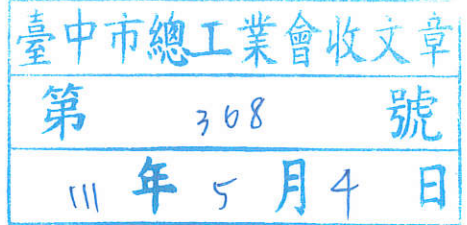 臺中市總工業會收文章
第 368 號
111 年 5 月 4 日